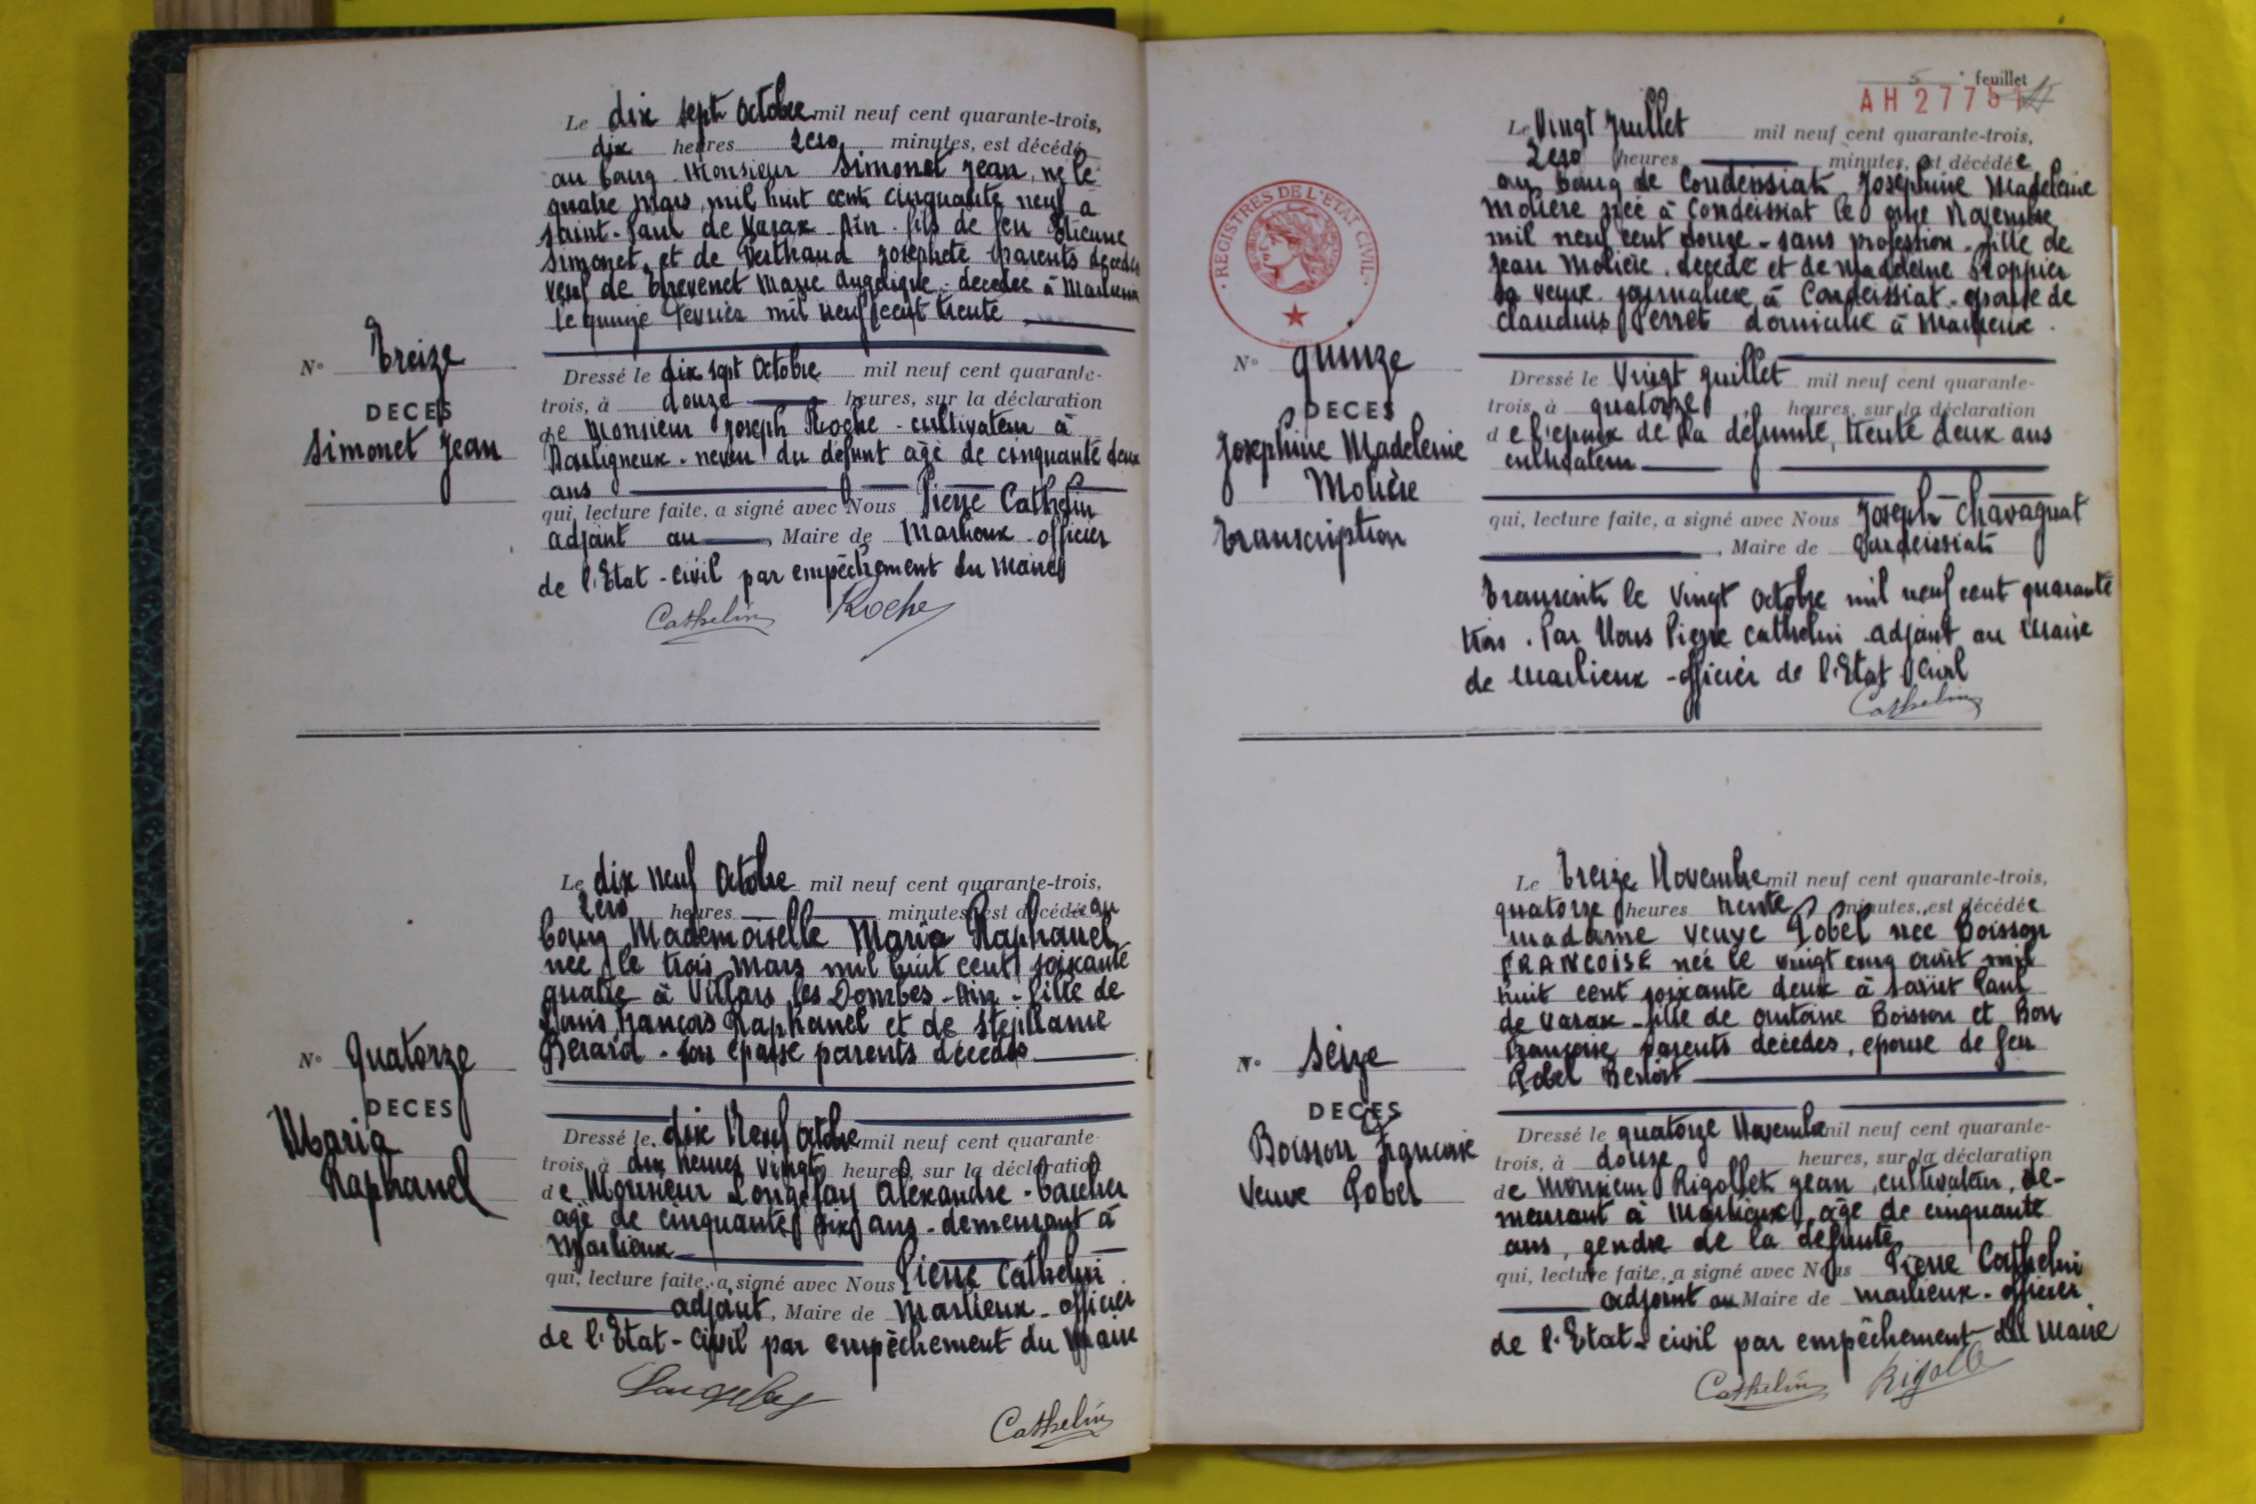 Le dix sept Octobre mil neuf cent quarante-trois,
dix heures zero minutes, est décédé
au bourg Monsieur Simonet Jean, né le
quatre Mars mil huit cent cinquante neuf a
Saint-Paul de Varax - Ain - fils de feu Etienne
Simonet et de Verthaud Josephete parents décédés
veuf de Marie Angélique - décédée à Marlieux
le quinze Fevrier mil neuf cent trente
N° Treize
DECES
Simonet Jean
Dressé le dix sept Octobre mil neuf cent quarante-
trois, à douze heures, sur la déclaration
de Monsieur Joseph Roche - cultivateur à
neveu du défunt âgé de cinquante deux
ans
qui, lecture faite, a signé avec Nous Pierre Cathelin
adjoint au Maire de Marlieux - officier
de l'Etat-civil par empêchement du Maire
Cathelin Roche
Le dix neuf Octobre mil neuf cent quarante-trois,
Zero heures minutes, est décédée au
bourg Mademoiselle Maria Raphanel
née le trois Mars mil huit cent soixante
quatre à Villars les Dombes - Ain - fille de
Louis François Raphanel et de Stephanie
Berard - son epouse parents décédés
N° Quatorze
DECES
Maria
Raphanel
Dressé le dix Neuf Octobre mil neuf cent quarante-
trois, à dix heures vingt heures, sur la déclaration
de Monsieur Longefay Alexandre -
agé de cinquante six ans - demeurant à
Marlieux
qui, lecture faite, a signé avec Nous Pierre Cathelin
adjoint, Maire de Marlieux - officier
de l'Etat-Civil par empêchement du Maire
Longefay
Cathelin
5e feuillet
AH 27751
Le Vingt Juillet mil neuf cent quarante-trois,
Zero heures minutes, est décédée
au bourg de Condeissiat Josephine Madeleine
Molière née à Condeissiat le onze Novembre
mil neuf cent douze - sans profession - fille de
Jean Molière, décédé et de Madeleine Roppier
sa veuve journalière à Condeissiat - epouse de
Claudius Perret domicilié à Marlieux.
REGISTRES DE L'ETAT CIVIL
N° Quinze
DECES
Josephine Madeleine
Molière
Transcription
Dressé le Vingt Juillet mil neuf cent quarante-
trois, à quatorze heures, sur la déclaration
de l'epoux de la défunte, trente deux ans
cultivateur
qui, lecture faite, a signé avec Nous Joseph Chavagnat
, Maire de Condeissiat
Transcrit le vingt Octobre mil neuf cent quarante
trois. Par Nous Pierre Cathelin adjoint au Maire
de Marlieux - officier de l'Etat Civil
Cathelin
Le Treize Novembre mil neuf cent quarante-trois,
quatorze heures trente minutes, est décédée
madame veuve Gobel née Boisson
FRANCOISE née le vingt cinq août mil
huit cent soixante deux à Saint Paul
de Varax - fille de Antoine Boisson et Bon
Françoise parents décédés, epouse de feu
Gobel Benoit
N° Seize
DECES
Boisson Francoise
Veuve Gobel
Dressé le quatorze Novembre mil neuf cent quarante-
trois, à douze heures, sur la déclaration
de Monsieur Rigollet Jean, cultivateur, de-
meurant à Marlieux, âgé de cinquante
ans, gendre de la défunte
qui, lecture faite, a signé avec Nous Pierre Cathelin
adjoint au Maire de Marlieux - officier
de l'Etat-civil par empêchement du Maire
Cathelin Rigolle